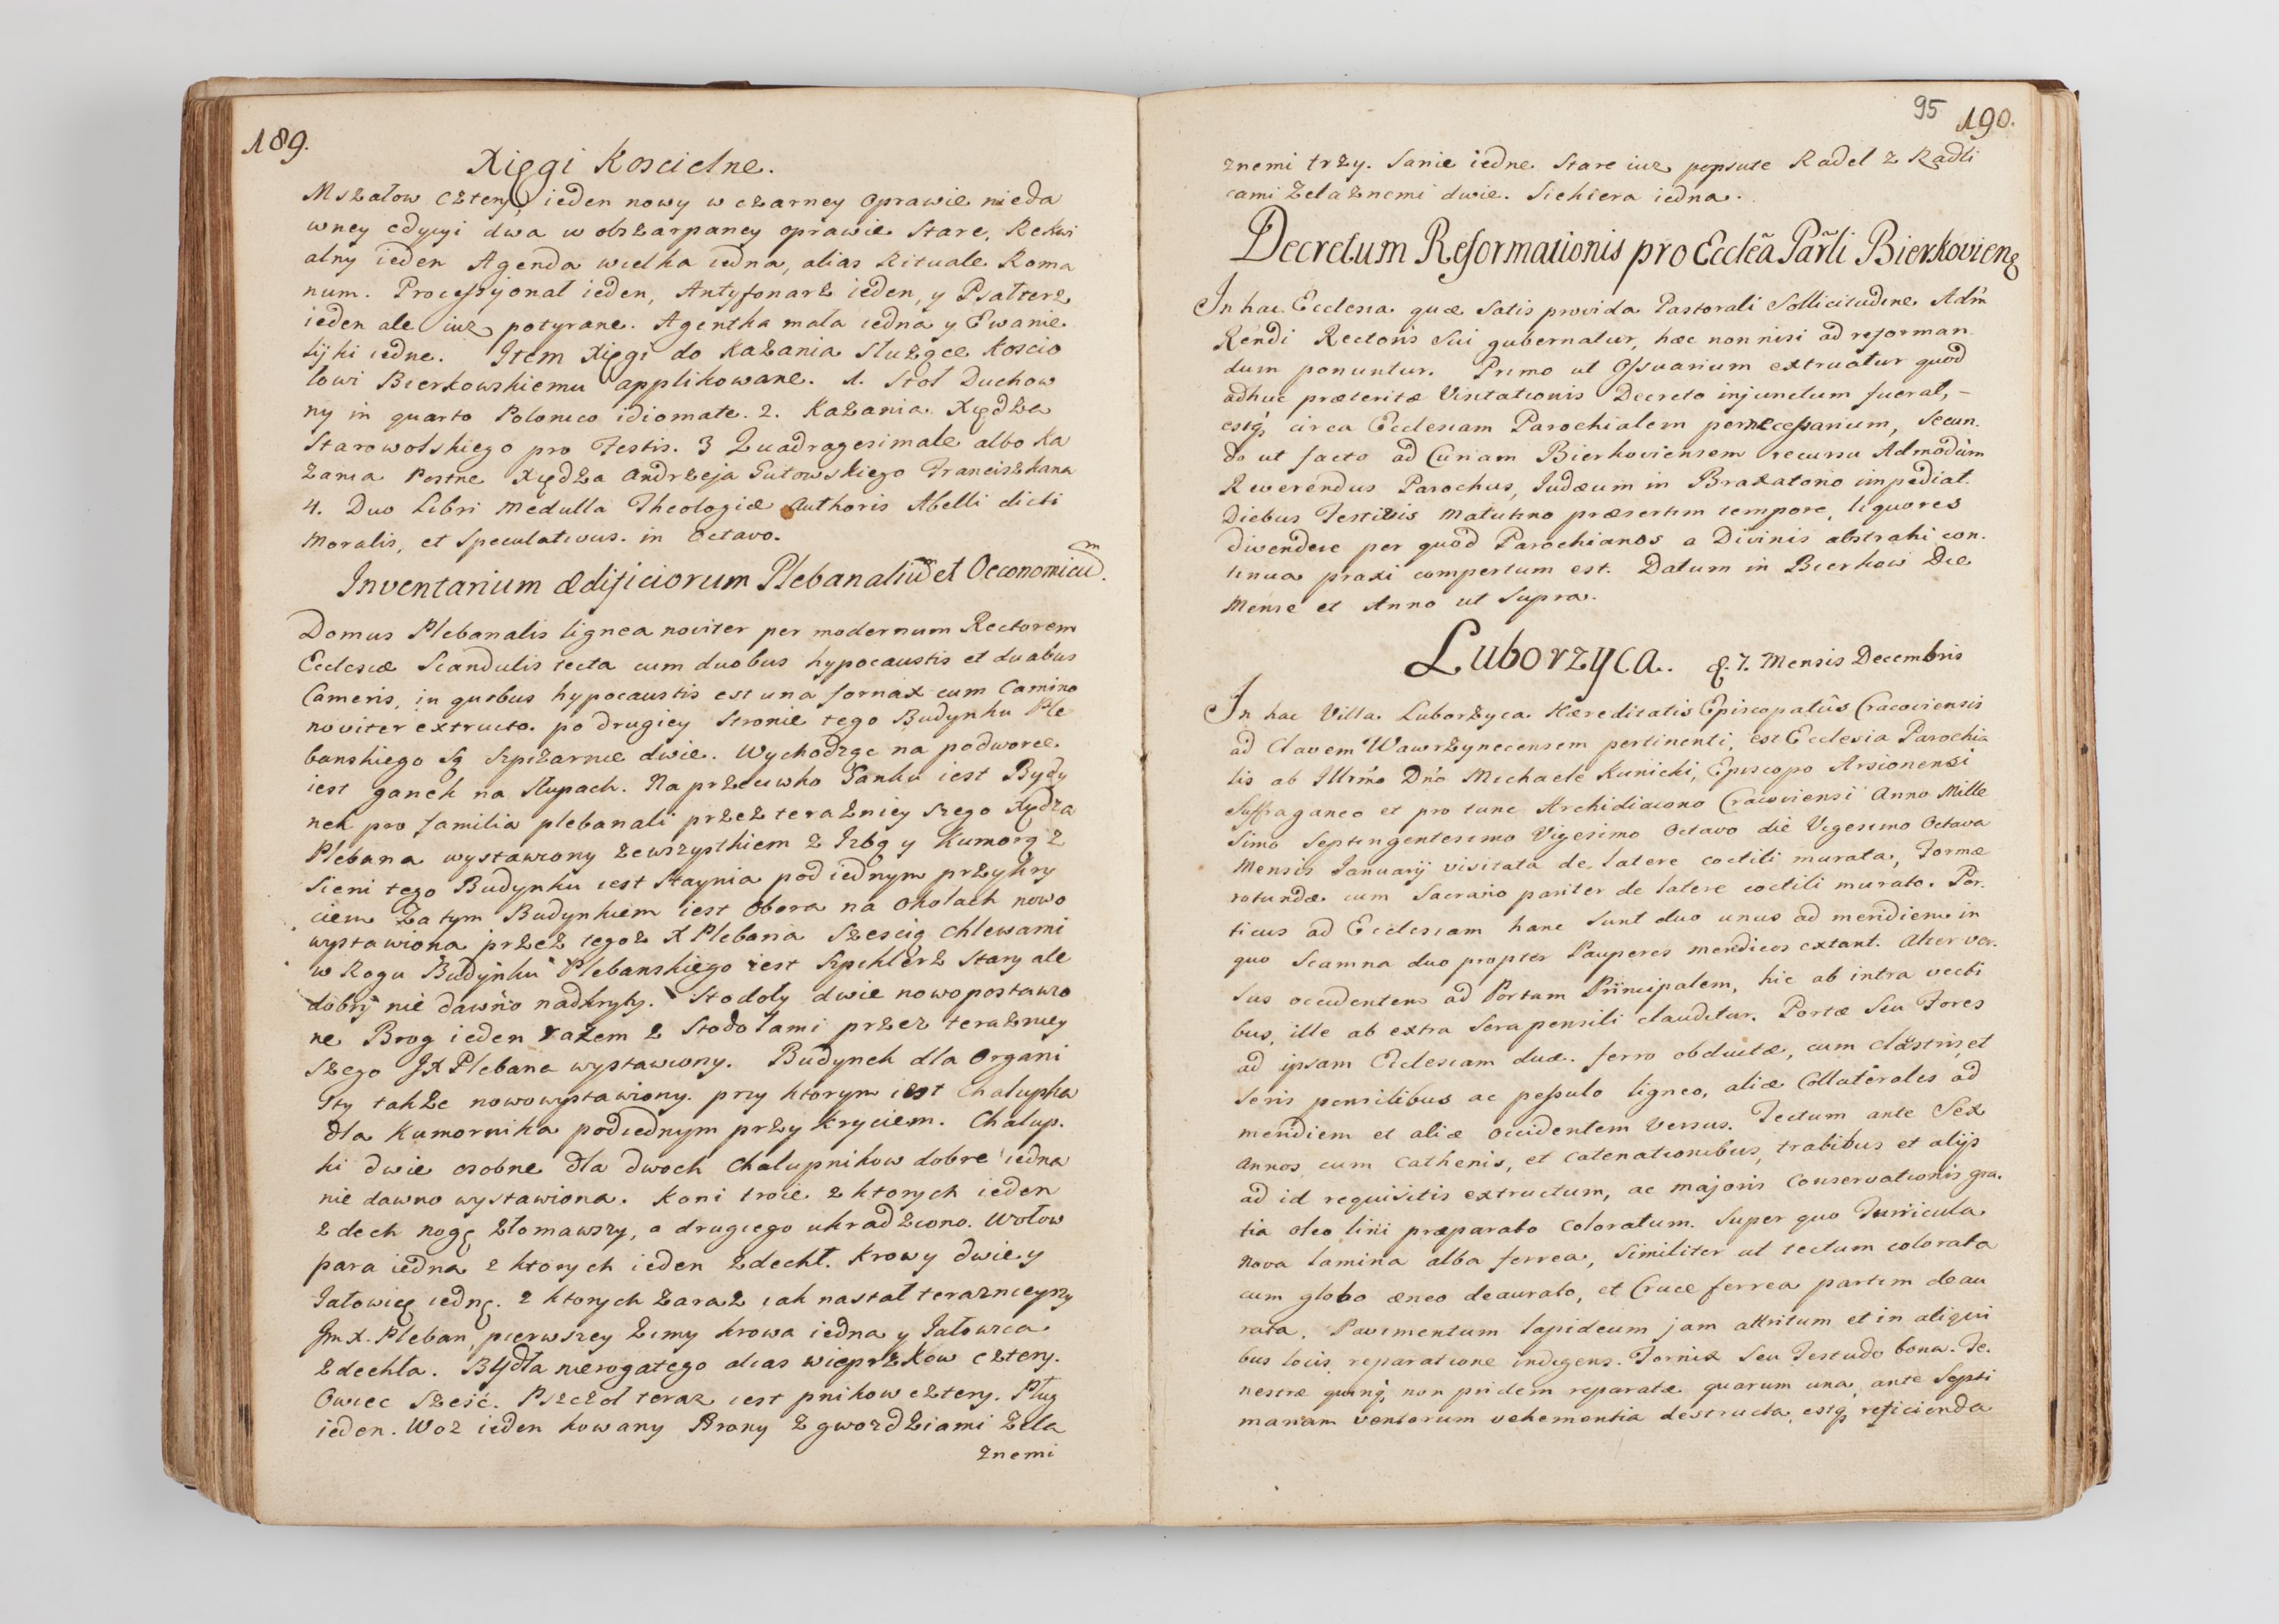 189.
Xięgi Koscielne.
Mszałow cztery, ieden nowy w czarney oprawie nieda
wney edycyi dwa w obszarpaney oprawie stare, Rekwi
alny ieden Agenda wielka iedna, alias Rituale Roma
num. Processyonał ieden, Antyfonarz ieden, y Psałterz
ieden ale iuz potyrane. Agentka mała iedna y Ewanie
lijki iedne. Item Xięgi do Kazania służące Koscio
łowi Bierkowskiemu applikowane. 1. Stoł Duchow
ny in quarto Polonico idiomate. 2. Kazania Xiędza
Starowolskiego pro Festis. 3 Quadragesimale albo Ka
zania Postne Xiędza Andrzeja Gutowskiego Franciszkana
4. Duo Libri Medulla Theologiæ Authoris Abelli dicti
Moralis, et Speculativus. in Octavo.
Inventarium ædificiorum Plebanaliũm et Oeconomicũm.
Domus Plebanalis lignea noviter per modernum Rectorem
Ecclesiæ Scandulis tecta cum duobus hypocaustis et duabus
Cameris, in quibus hypocaustis est una fornax cum Camino
noviter extructo. po drugiey stronie tego Budynku Ple
banskiego są szpizarnie dwie. Wychodząc na podworce
iest ganek na słupach. Naprzeciwko Ganku iest Budy
nek pro familia plebanali przez teraznieyszego Xiędza
Plebana wystawiony zewszystkiem z Izbą y Kumorą z
Sieni tego Budynku iest Staynia pod iednym przykry
ciem za tym Budynkiem iest Obora na okołach nowo
wystawiona przez tegoz X Plebana Szescią Chlewami
w Rogu Budynku Plebanskiego iest Szpiklerz stary ale
dobrÿ nie dawno nadkryty. Stodoły dwie nowopostawio
ne Brog ieden razem z Stodołami przez teraznie
szego JX Plebana wystawiony. Budynek dla Organi
sty takze nowowystawiony. przy ktorym iest Chałupka
dla Kumornika pod iednym przykryciem. Chałup.
ki dwie osobne dla dwoch Chałupnikow dobre iedna
nie dawno wystawiona. Koni troie z ktorych ieden
zdech nogę złomawszy, a drugiego ukradziono. Wołow
para iedna z ktorych ieden zdechł. Krowy dwie y
Jałowicę iednę. z ktorych zaraz iak nastał teraznieyszy
Jm X. Pleban, pierwszey zimy krowa iedna y Jałowica
zdechła. Bydła nierogatego alias wieprzkow cztery.
Owiec Szesć. Pszczoł teraz iest pnikow cztery. Pług
ieden. Woz ieden kowany Brony z gwozdziami Zela
znemi
95 190.
znemi trzy. Sanie iedne stare iuz popsute Radeł z Radli
cami Zelaznemi dwie. Siekiera iedna.
Decretum Reformationis pro Ecclẽa Parl̃i Bierkovieng
In hac Ecclesia quæ satis provida Pastorali Sollicitudine Adm̃
Rendi Rectoris sui gubernatur, hæc non nisi ad reforman
dum ponuntur. Primo ut Ossuarium extruatur quod
adhuc præteritæ Visitationis Decreto injunctum fuerat, –
estq́ circa Ecclesiam Parochialem pernecessarium, Secun.
do ut facto ad Curiam Bierkoviensem recursu Admodum
Reverendus Parochus, Judæum in Braxatorio impediat.
Diebus Festivis matutino præsertim tempore, liquores
divendere per quod Parochianos a Divinis abstrahi con.
tinua praxi compertum est. Datum in Bierkow Die
Mense et Anno ut Supra.
Luborzyca. d. 7. Mensis Decembris
In hac Villa Luborzyca Hæreditatis Episcopatûs Cracoviensis
ad Clavem Wawrzynecensem pertinenti, est Ecclesia Parochia
lis ab Illr̃mo Dño Michaele Kunicki, Episcopo Arsionensi
Suffraganeo et pro tunc Archidiacono Cracoviensi Anno Mille
simo Septingentesimo Vigesimo Octavo die Vigesimo Octava
Mensis Januarij visitata de latere coctili murata, Formæ
rotundæ cum Sacrario pariter de latere coctili murato. Por.
ticus ad Ecclesiam hanc sunt duo unus ad meridiem in
quo Scamna duo propter Pauperes mendicos extant. Alter ver.
sus occidentem ad Portam Principalem, hic ab intra vecti
bus, ille ab extra Sera pensili clauditur. Portæ Seu Fores
ad ipsam Ecclesiam duæ. ferro obductæ, cum claustris, et
seris pensilibus ac pessulo ligneo, aliæ Collaterales ad
meridiem et aliæ occidentem versus. Tectum ante Sex
Annos cum Cathenis, et catenationibus, trabibus et alijs
ad id requisitis extructum, ac majoris Conservationis gra.
tia oleo lini præparato coloratum. Super quo Turricula
nova lamina alba ferrea, similiter ut tectum colorata
cum globo æneo deaurato, et Cruce ferrea partim deau
rata. Pavimentum lapideum jam attritum et in aliqui
bus locis reparatione indigens. Fornix Seu Testudo bona. Fe.
nestræ quinq́ non pridem reparatæ quarum una, ante Septi
manam ventorum vehementia destructa, estq́ reficienda